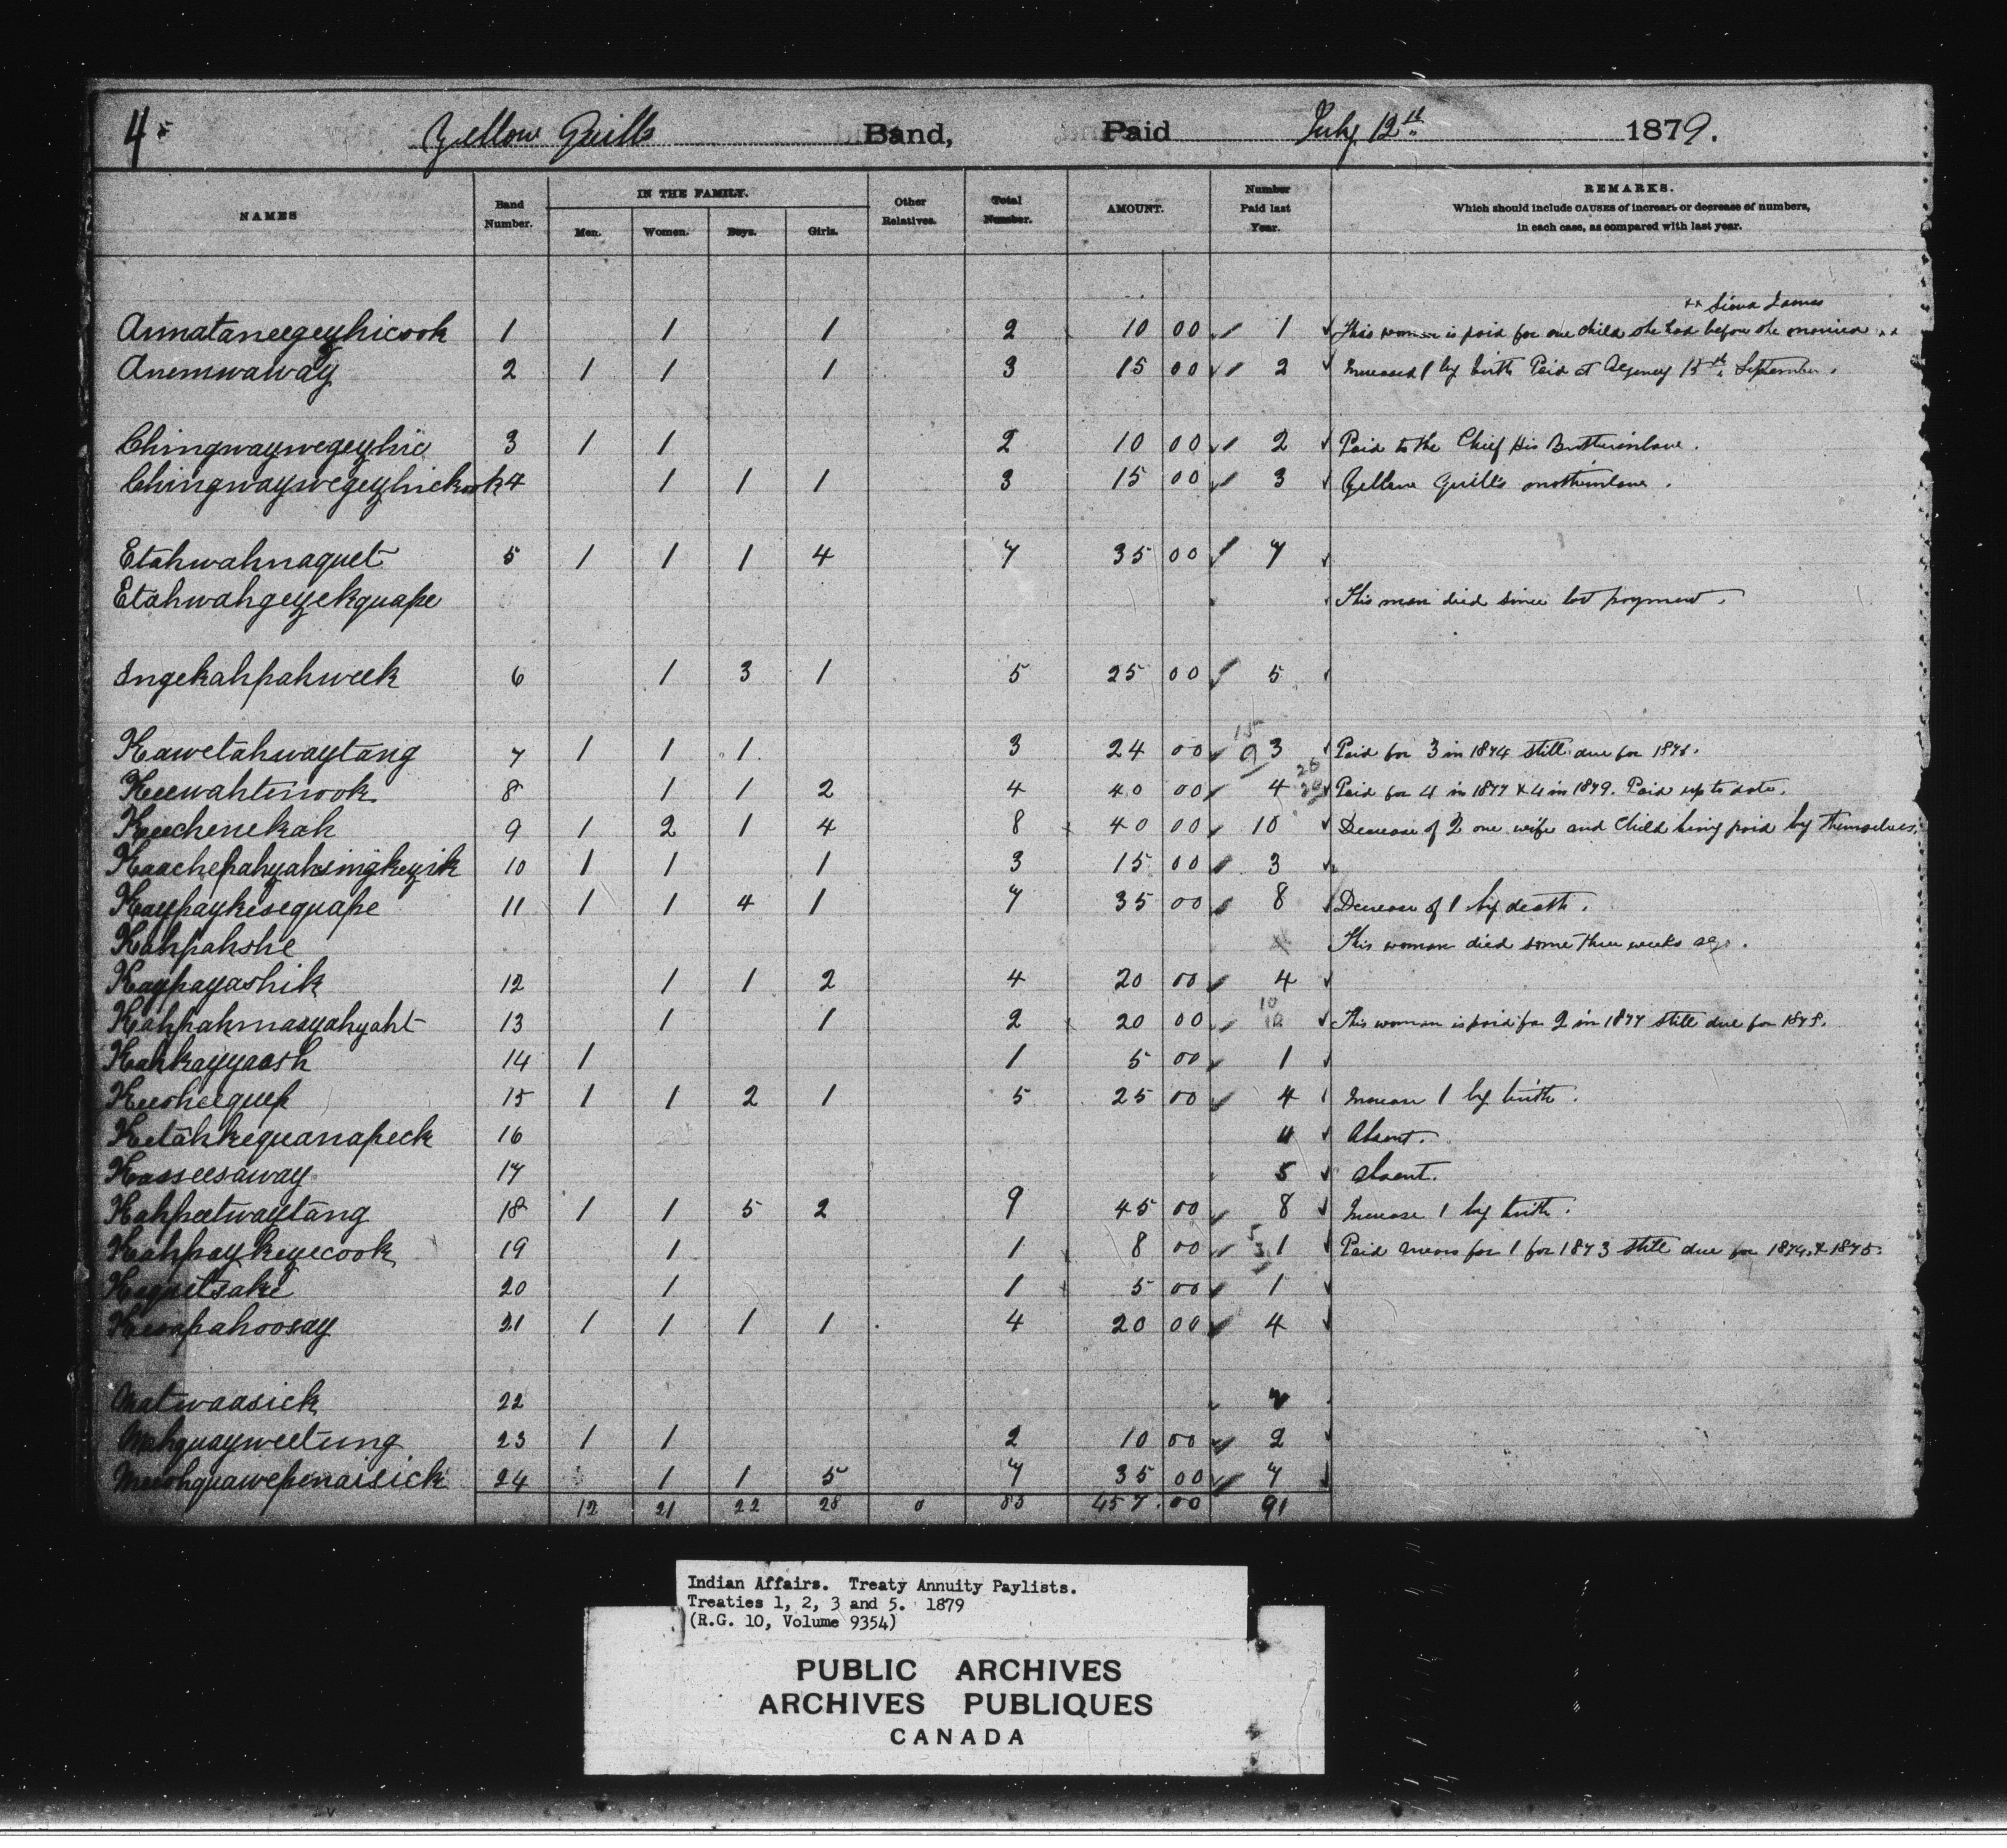 4
Yellow Quills Band, Paid July 12th 1879.
NAMES Band Number. IN THE FAMILY. Men. Women. Boys. Girls. Other Relatives. Total Number. AMOUNT. Number Paid last Year. REMARKS. Which should include CAUSES of increase or decrease of numbers, in each case, as compared with last year.
xx James
Annataneegeyhicook 1 1 1 2 10 00 1 This woman is paid for one child she had before she married xx
Anemwaway 2 1 1 1 3 15 00 2 Increased 1 by birth Paid at Agency 15th September.
Chingwaywegeyhic 3 1 1 2 10 00 2 Paid to the Chief His Brotherinlaw.
Chingwaywegeyhickook 4 1 1 1 3 15 00 3 Yellow Quill's motherinlaw.
Etahwahnaquet 5 1 1 1 4 7 35 00 7
Etahwahgeyekquape This man died since last payment.
Ingekahpahweek 6 1 3 1 5 25 00 5
15
Kawetahwaytang 7 1 1 1 3 24 00 9 3 Paid for 3 in 1874 still due for 1875.
20
Keewahtinook 8 1 1 2 4 40 00 4 Paid for 4 in 1877 & 4 in 1879. Paid up to date.
Keechenekah 9 1 2 1 4 8 40 00 10 Decrease of 2 one wife and child being paid by themselves.
Kaachepahyahsingkeyik 10 1 1 1 3 15 00 3
Kaypaykesequape 11 1 1 4 1 7 35 00 8 Decrease of 1 by death.
Kahpahshe This woman died some three weeks ago.
Kaypayashik 12 1 1 2 4 20 00 4
10
Kahpahmasyahyaht 13 1 1 2 20 00 This woman is paid for 2 in 1877 still due for 1878.
Kahkayyaash 14 1 1 5 00 1
Keesheequep 15 1 1 2 1 5 25 00 4 Increase 1 by birth.
Ketahkequanapeck 16 4 Absent.
Kasseesaway 17 5 Absent.
Kahpeetwaytang 18 1 1 5 2 9 45 00 8 Increase 1 by birth.
5
Kahpaykeyecook 19 1 1 8 00 3 1 Paid arrears for 1 for 1873 still due for 1874 & 1875.
Kequetsake 20 1 1 5 00 1
Kesapahoosay 21 1 1 1 1 4 20 00 4
Matwaasick 22
Mahquayweetung 23 1 1 2 10 00 2
Meeshquawepenaisick 24 1 1 5 7 35 00 7
12 21 22 28 0 83 457.00 91
Indian Affairs. Treaty Annuity Paylists.
Treaties 1, 2, 3 and 5. 1879
(R.G. 10, Volume 9354)
PUBLIC ARCHIVES
ARCHIVES PUBLIQUES
CANADA